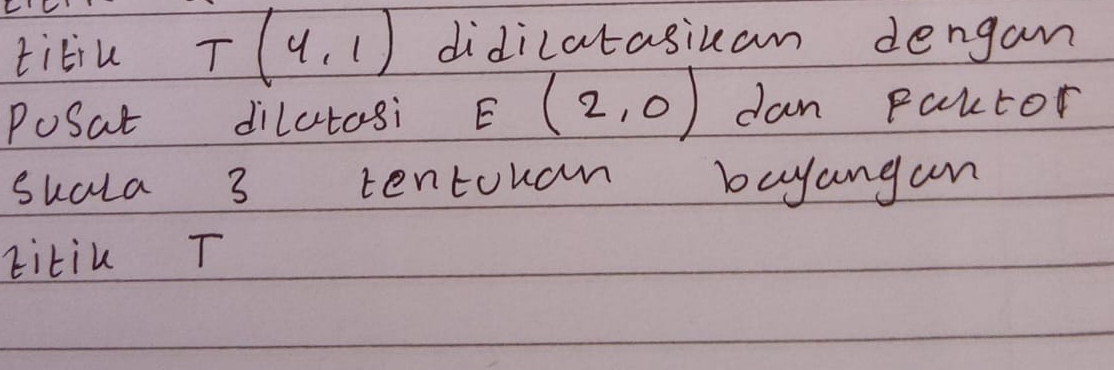 titik T (4,1) didilatasikan dengan
Pusat dilatasi E (2,0) dan Faktor
Skala 3 tentukan bayangan
titik T